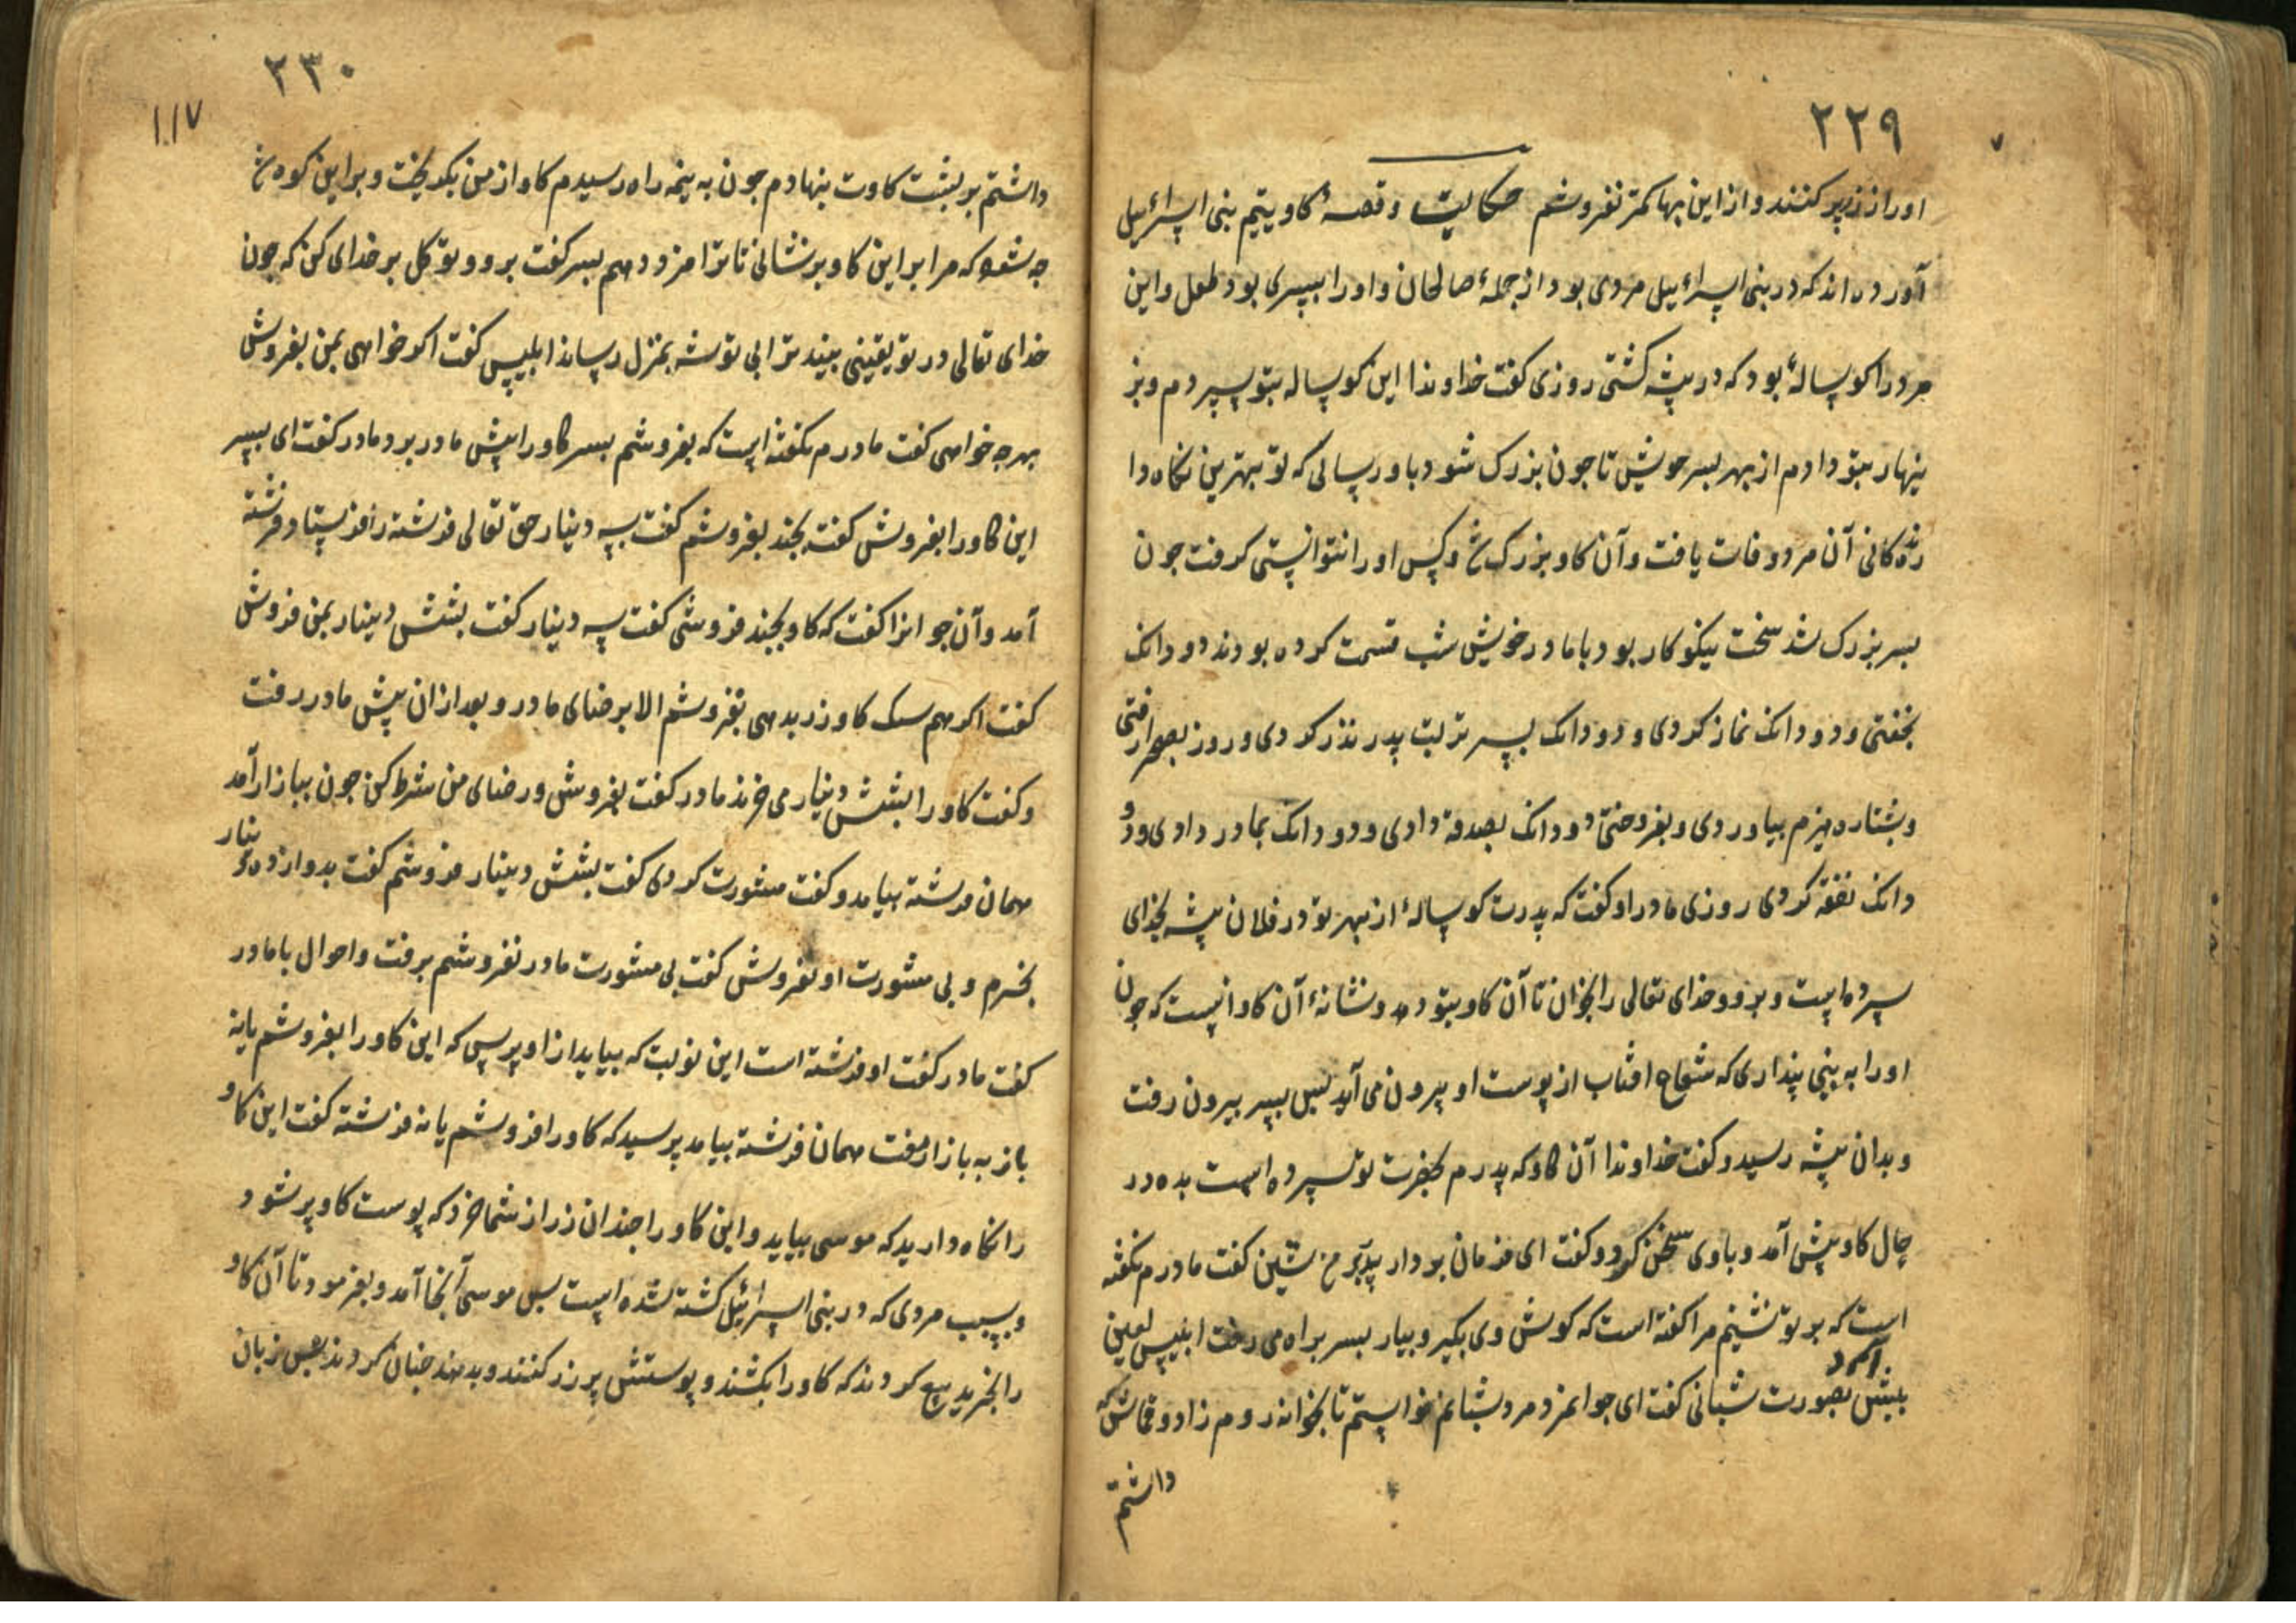 ٢٢٩
او را از زر پر کنند و از این بها کمتر نفروشم حکایت و قصهٔ کاو یتیم بنی اسرائیل
آورده اند که در بنی اسرائیل مردی بود از جملهٔ صالحان و او را پسری بود طفل و این
مرد را کوسالهٔ بود که در بیشه کشتی روزی کفت خداوندا این کوساله بتو سپردم و بز
ینهار بتو دادم از بهر پسر خویش تا جون بزرک شود باو رسانی که تو بهترین نکاه دا
رنده کانی آن مرد وفات یافت و آن کاو بزرک شد و کس او را نتوانستی کرفت جون
بسر بزرک شد سخت نیکو کار بود با مادر خویش شب قسمت کرده بودند دو دانک
بخفتی و دو دانک نماز کردی و دو دانک بسر تربت پدر نذر کردی و روز بصحرا رفتی
و بشتاره هیزم بیاوردی و بفروختی دو دانک بصدقه دادی و دو دانک بمادر دادی و دو
دانک نفقه کردی روزی مادر او کفت که پدرت کوسالهٔ از بهر تو در فلان بیشه بخدای
سپرده است و برو و خدای تعالی را بخوان تا آن کاو بتو دهد و نشانهٔ آن کاو انست که جون
او را به بینی پنداری که شعاع افتاب از پوست او بیرون می آید پس پسر بیرون رفت
و بدان بیشه رسید و کفت خداوندا آن کاو که پدرم بحضرت تو سپرده است بده در
حال کاو پیش آمد و باوی سخن کرد و کفت ای فرمان بردار پدر بر من نشین کفت مادرم نکفته
است که بر تو نشینم مرا کفته است که کوش وی بکیر و بیار بسر براه می رفت ابلیس لعین
آمد
بیش بصورت شبانی کفت ای جوانمرد مرد شبانم خواستم تا بخانه روم زاد و قماش که
داشتم
٢٣٠
١١٧
داشتم بر بشت کاوت بنهادم جون به نیمه راه رسیدم کاو از من بکریخت و بر این کوه شد
جه شود که مرا بر این کاو بر نشانی تا ترا مزد دهم بسر کفت برو و توکل بر خدای کن که جون
خدای تعالی در تو یقینی بیند ترا بی توشه بمنزل رساند ابلیس کفت اکر خواهی بمن بفروش
بهرجه خواهی کفت مادرم نکفته است که بفروشم بسر کاو را پیش مادر برد مادر کفت ای بسر
این کاو را بفروش کفت بجند بفروشم کفت بسه دینار حق تعالی فرشته را فرستاد فرشته
آمد و آن جوانرا کفت که کاو بجند فروشی کفت سه دینار کفت بشش دینار بمن فروش
کفت اکر هم سنک کاو زر بدهی نفروشم الا برضای مادر و بعد از ان پیش مادر رفت
و کفت کاو را بشش دینار می خرند مادر کفت بفروش و رضای من شرط کن جون ببازار آمد
همان فرشته بیامد و کفت مشورت کردی کفت بشش دینار فروشم کفت بدوازده دینار
بخرم و بی مشورت او بفروش کفت بی مشورت مادر نفروشم برفت و احوال با مادر
کفت مادر کفت او فرشته است این نوبت که بیاید از او پرس که این کاو را بفروشم یا نه
باز به بازار رفت همان فرشته بیامد پرسید که کاو را فروشم یا نه فرشته کفت این کاو
را نکاه دارید که موسی بیاید و این کاو را جندان زر از شما خرد که پوست کاو پر شود
و بسبب مردی که در بنی اسرائیل کشته شده است بس موسی آنجا آمد و بفرمود تا آن کاو
را بخرید بیع کردند که کاو را بکشند و پوستش پر زر کنند و بدهند جنان کردند بس زبان